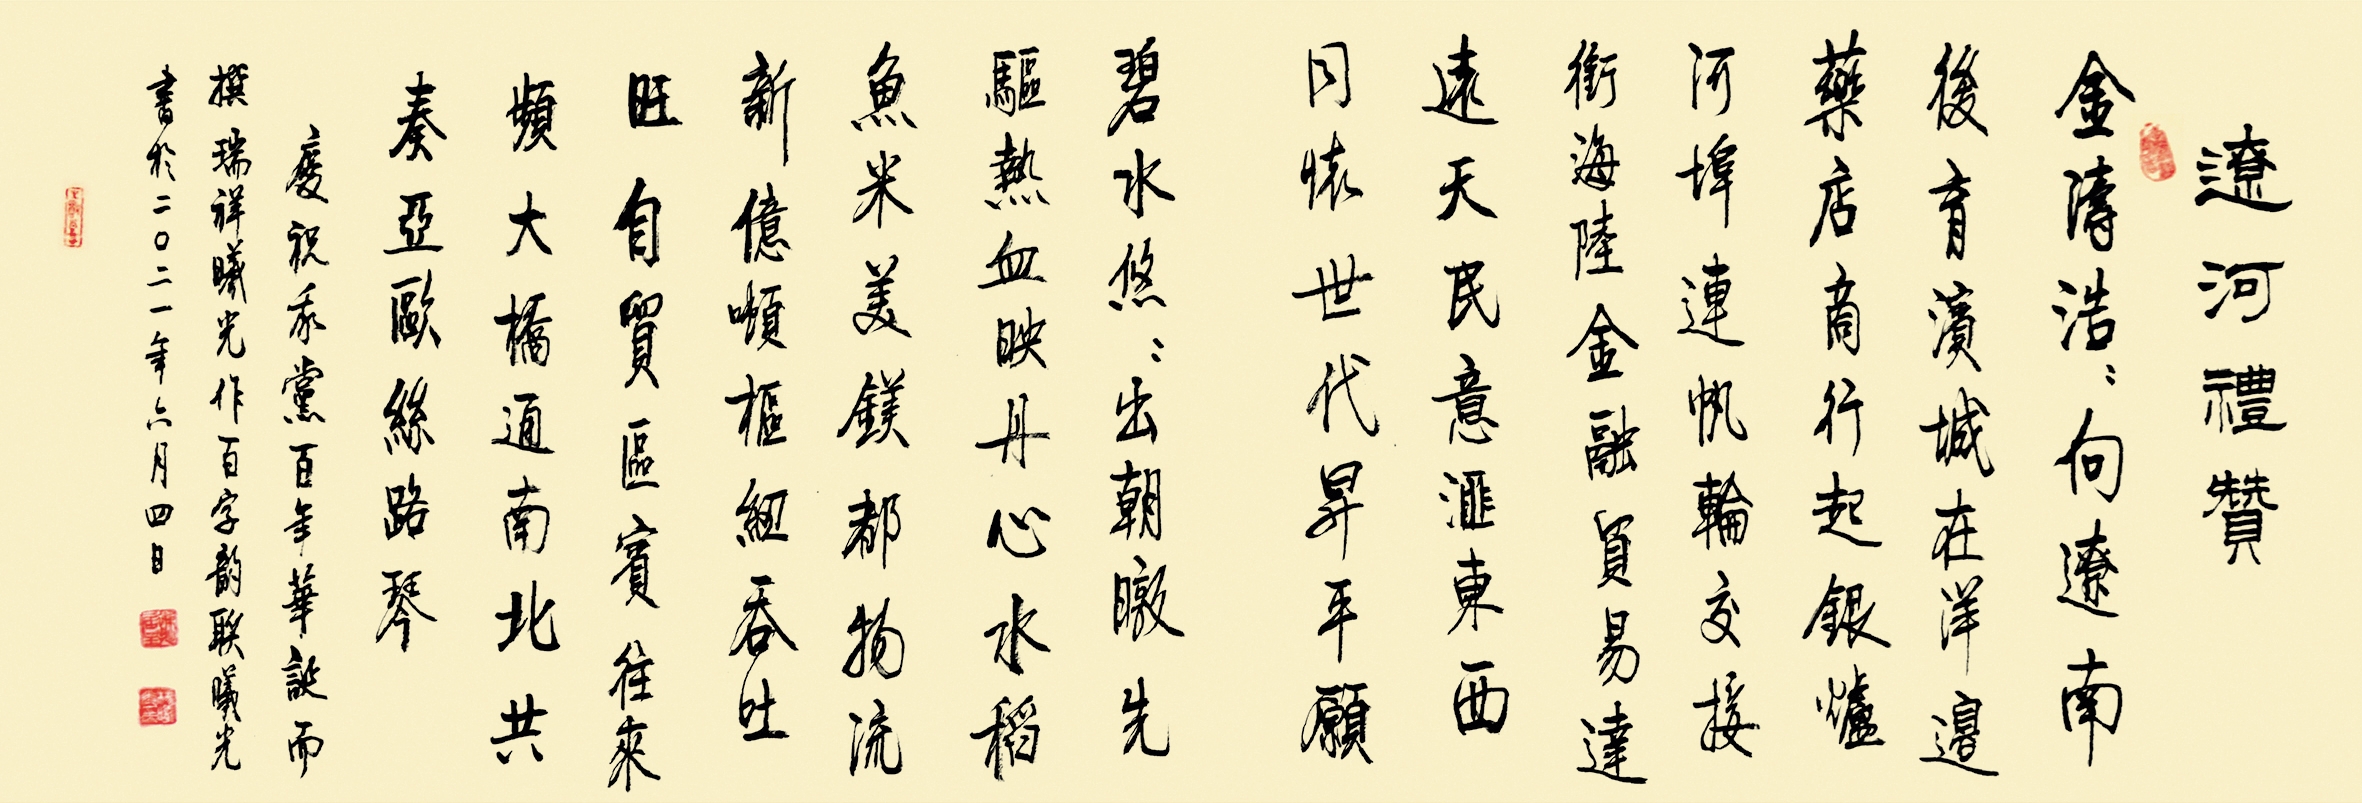 遼河禮贊
金濤浩〻向遼南
後育濱城在洋邊
藥店商行起銀爐
河埠連帆輪交接
銜海陸金融貿易達
遠天民意滙東西
同懷世代昇平願
碧水悠〻出朝暾先
驅熱血映丹心水稻
魚米美鎂都物流
新億噸樞紐吞吐
旺自貿區賓往來
頻大橋通南北共
奏亞歐絲路琴
慶祝我黨百年華誕而
撰瑞祥曦光作百字韵联曦光
書於二〇二一年六月四日